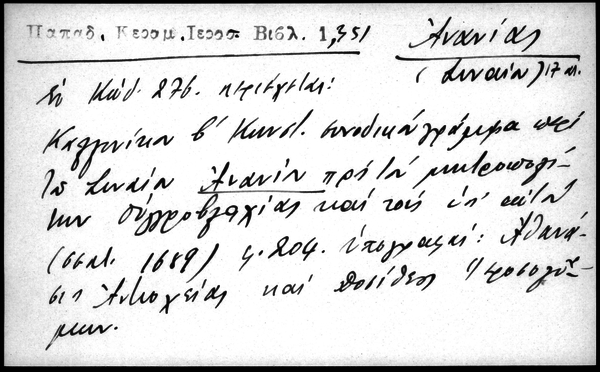 Παπαδ. Κερσμ. Ιεροσ. Βιβλ. 1,351
Ἀνανίας
(Σιναΐτ) 17 αι.
ἐν Κώδ. 276. περιέχεται:
Καλλινίκου β' Κωνστ. συνοδικὸν γράμμα περὶ
τοῦ Σιναΐτ Ἀνανία πρὸς τὸν μητροπολί-
την Οὐγγροβλαχίας καὶ τοὺς ὑπ' αὐτὸν
(1689) φ. 204. ὑπογραφαί: Ἀθανά-
σιος Ἀντιοχείας καὶ Δοσίθεος Ἱεροσολύ-
μων.